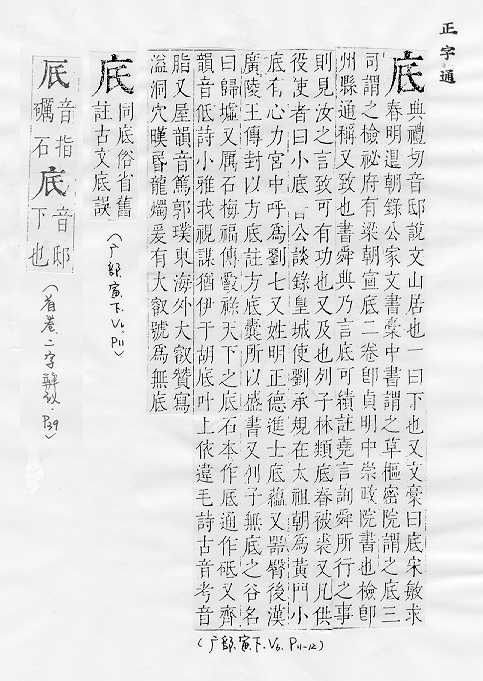 正字通
底
典禮切音邸說文山居也一曰下也又文稾曰底宋敏求
春明退朝錄公家文書稾中書謂之草樞密院謂之底三
司謂之檢祕府有梁朝宣底二卷卽貞明中崇政院書也檢卽
州縣通稱又致也書舜典乃言底可績註堯言詢舜所行之事
則見汝之言致可有功也又及也列子林類底春被裘又凡供
役使者曰小底 公談錄皇城使劉承規在太祖朝爲黃門小
底有心力宮中呼爲劉七又姓明正德進士底蘊又器臀後漢
廣陵王傳封以方底註方底囊所以盛書又列子無底之谷名
曰歸墟又厲石梅福傳爵祿天下之底石本作厎通作砥又齊
韻音低詩小雅我視謀猶伊于胡底叶上依違毛詩古音考音
脂又屋韻音篤郭璞東海外大叡贊寫
溢洞穴暵昏龍燭爰有大叡號爲無底
(广部.寅下.V6.P11-12)
㡳
同底俗省舊
註古文底誤
(广部.寅.下.V6.P11)
厎
音指
礪石
底
音邸
下也
(首卷.二字辨似 P39)